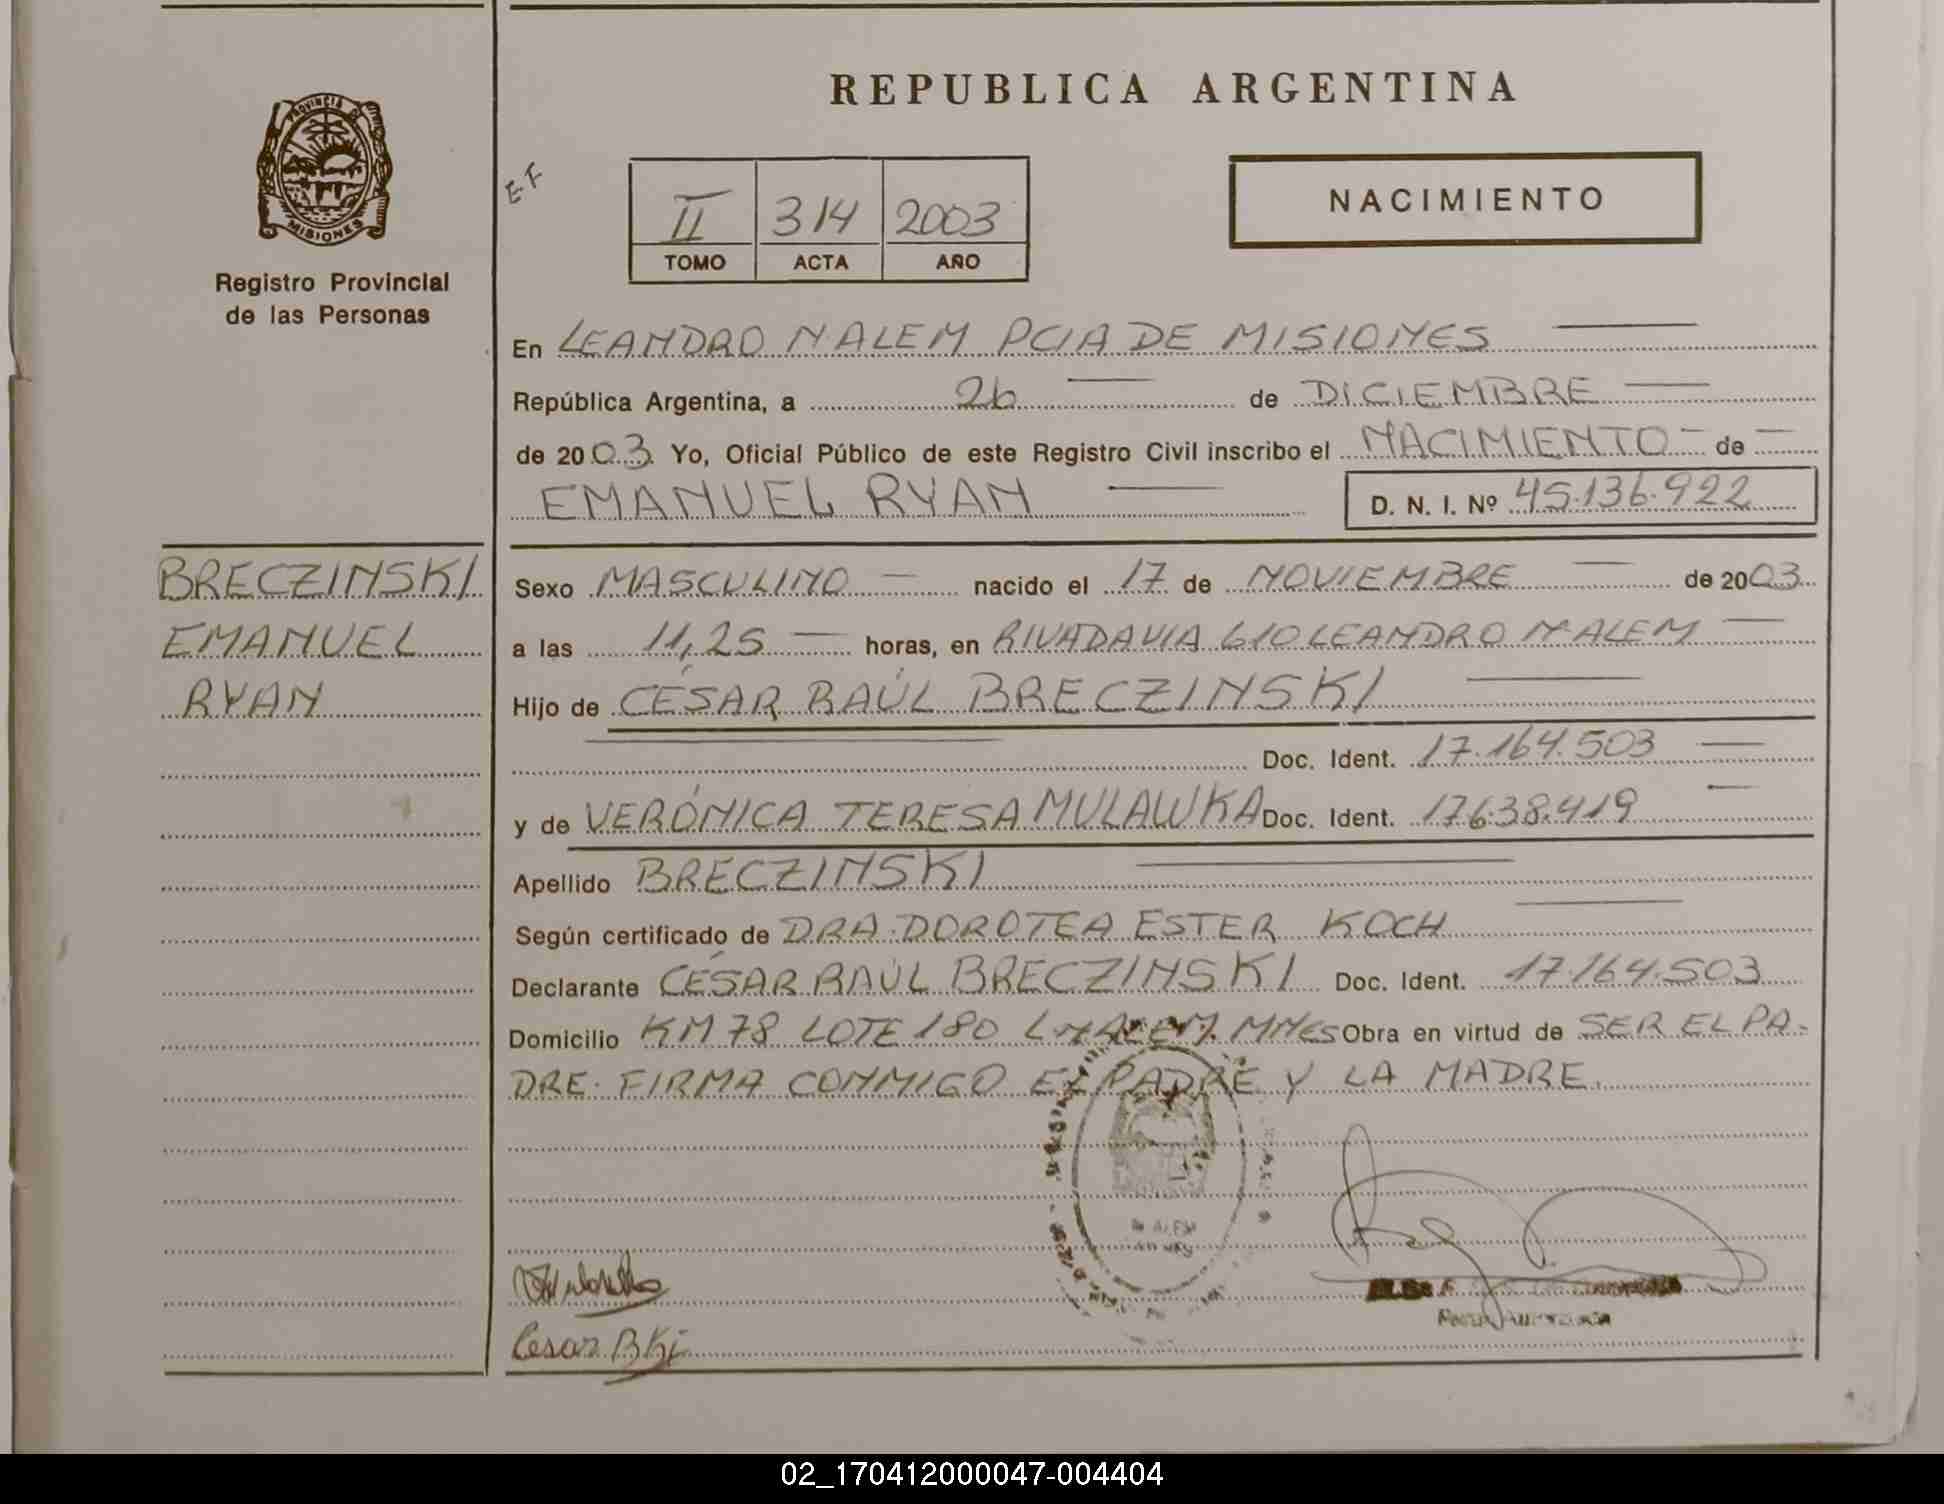 REPUBLICA ARGENTINA
PROVINCIA DE
MISIONES
Registro Provincial
de las Personas
E F
II 314 2003
TOMO ACTA AÑO
NACIMIENTO
En LEANDRO N. ALEM PCIA DE MISIONES
República Argentina, a 26 de DICIEMBRE
de 2003. Yo, Oficial Público de este Registro Civil inscribo el NACIMIENTO de
EMANUEL RYAN D. N. I. Nº 45.136.922
BRECZINSKI
EMANUEL
RYAN
Sexo MASCULINO nacido el 17 de NOVIEMBRE de 2003
a las 11,25 horas, en RIVADAVIA 610 LEANDRO N. ALEM
Hijo de CÉSAR RAÚL BRECZINSKI
Doc. Ident. 17.164.503
y de VERÓNICA TERESA MULAWKA Doc. Ident. 17.638.419
Apellido BRECZINSKI
Según certificado de DRA. DOROTEA ESTER KOCH
Declarante CÉSAR RAÚL BRECZINSKI Doc. Ident. 17.164.503
Domicilio KM 78 LOTE 180 L. N. ALEM. MNES Obra en virtud de SER EL PA-
DRE. FIRMA CONMIGO EL PADRE Y LA MADRE.
N. ALEM
Cesar BKi
02_170412000047-004404